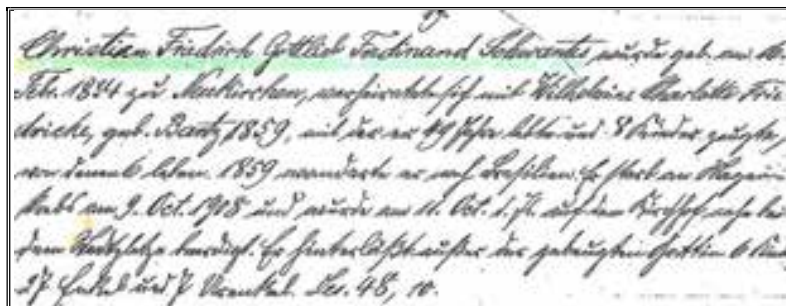 17.
Christian Friedrich Gottlieb Ferdinand Schwantes wurde geb. am 16.
Feb. 1834 zu Neukirchen, verheiratete sich mit Wilhelmine Charlotte Frie
dricke, geb. Bantz, 1859, mit der er 49 Jahre lebte und 8 Kinder zeugte,
von denen 6 leben. 1859 wanderte er nach Brasilien. Er starb an Magen
krebs am 9. Oct. 1908 und wurde am 11. Oct. d. J. auf dem Kirchhof nahe bei
dem beerdigt. Er hinterläßt außer der gebeugten Gattin 6 Kinder
27 Enkel und 7 Urenkel. Jes. 48, 10.